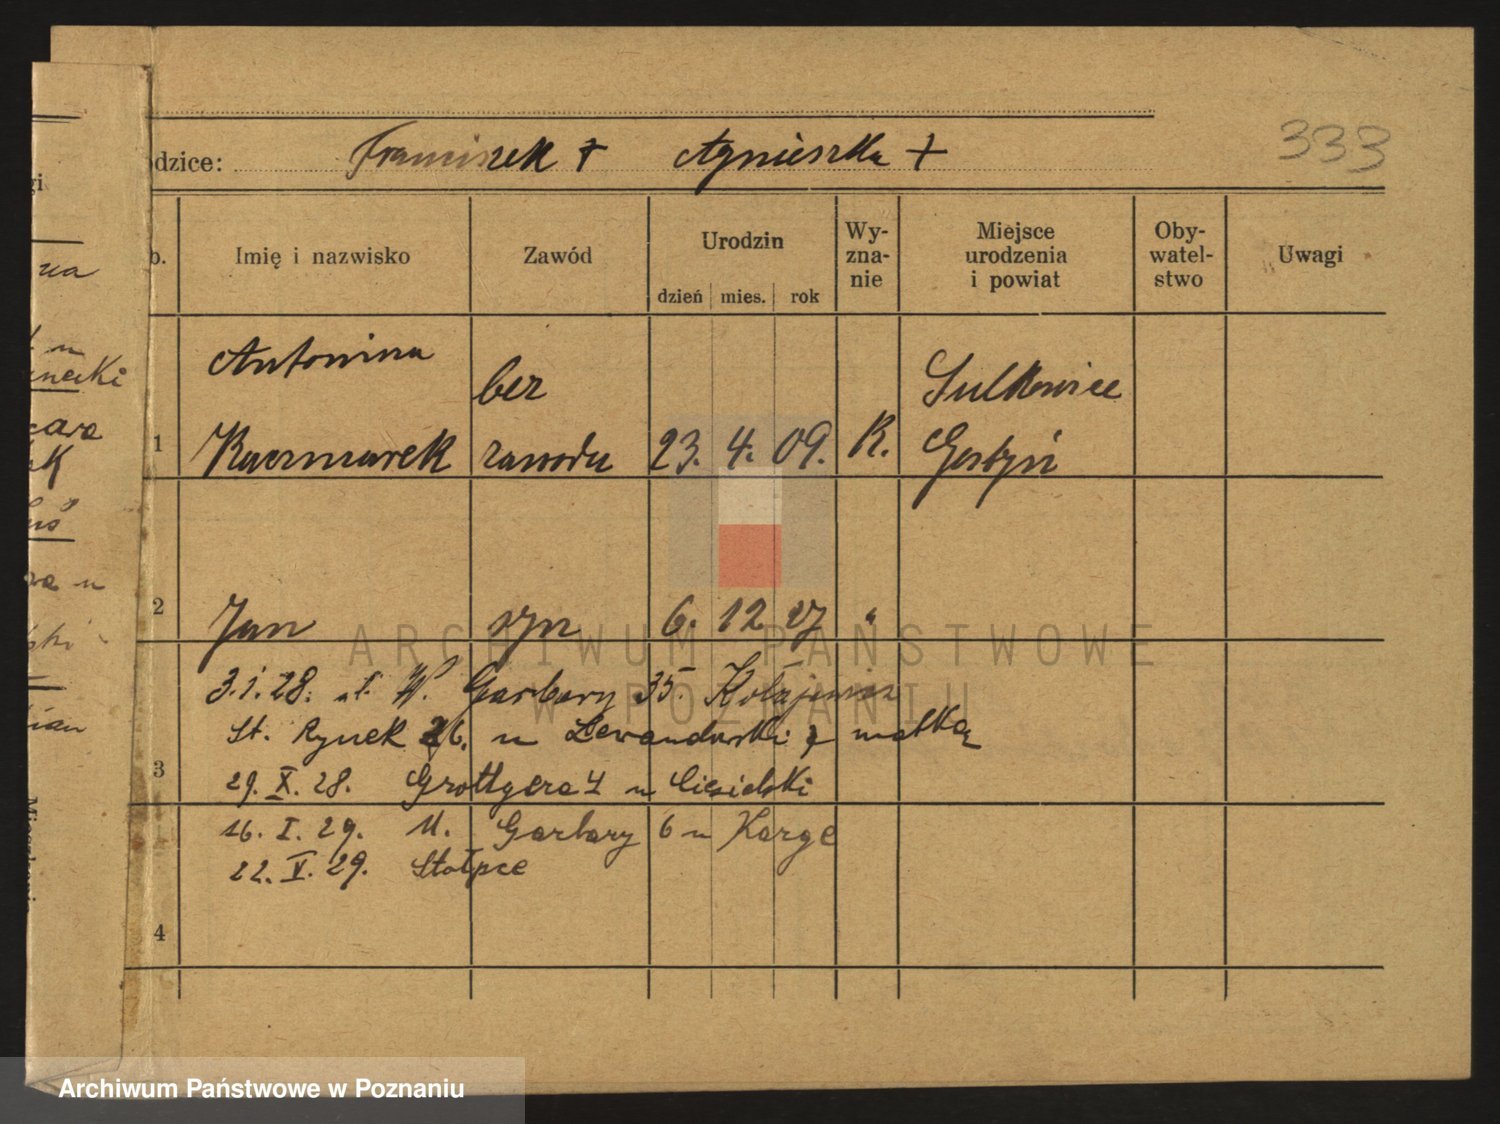 333
odzice: Franciszek + Agnieszka +
b. Imię i nazwisko Zawód Urodzin dzień mies. rok Wy-zna-nie Miejsce urodzenia i powiat Oby-watel-stwo Uwagi
Antonina bez Sulkowice
1 Kaczmarek zawodu 23. 4. 09. R. Gostyń
2 Jan syn 6. 12 27 "
3.1.28. W. Garbary 35.
St. Rynek u Lewandowski z matką
3 29. X. 28. Grottgera 4 u Ciesielski
16. I. 29. M. Garbary 6 u Karge
22. V. 29. Stołpce
4
ARCHIWUM PAŃSTWOWE
W POZNANIU
Archiwum Państwowe w Poznaniu